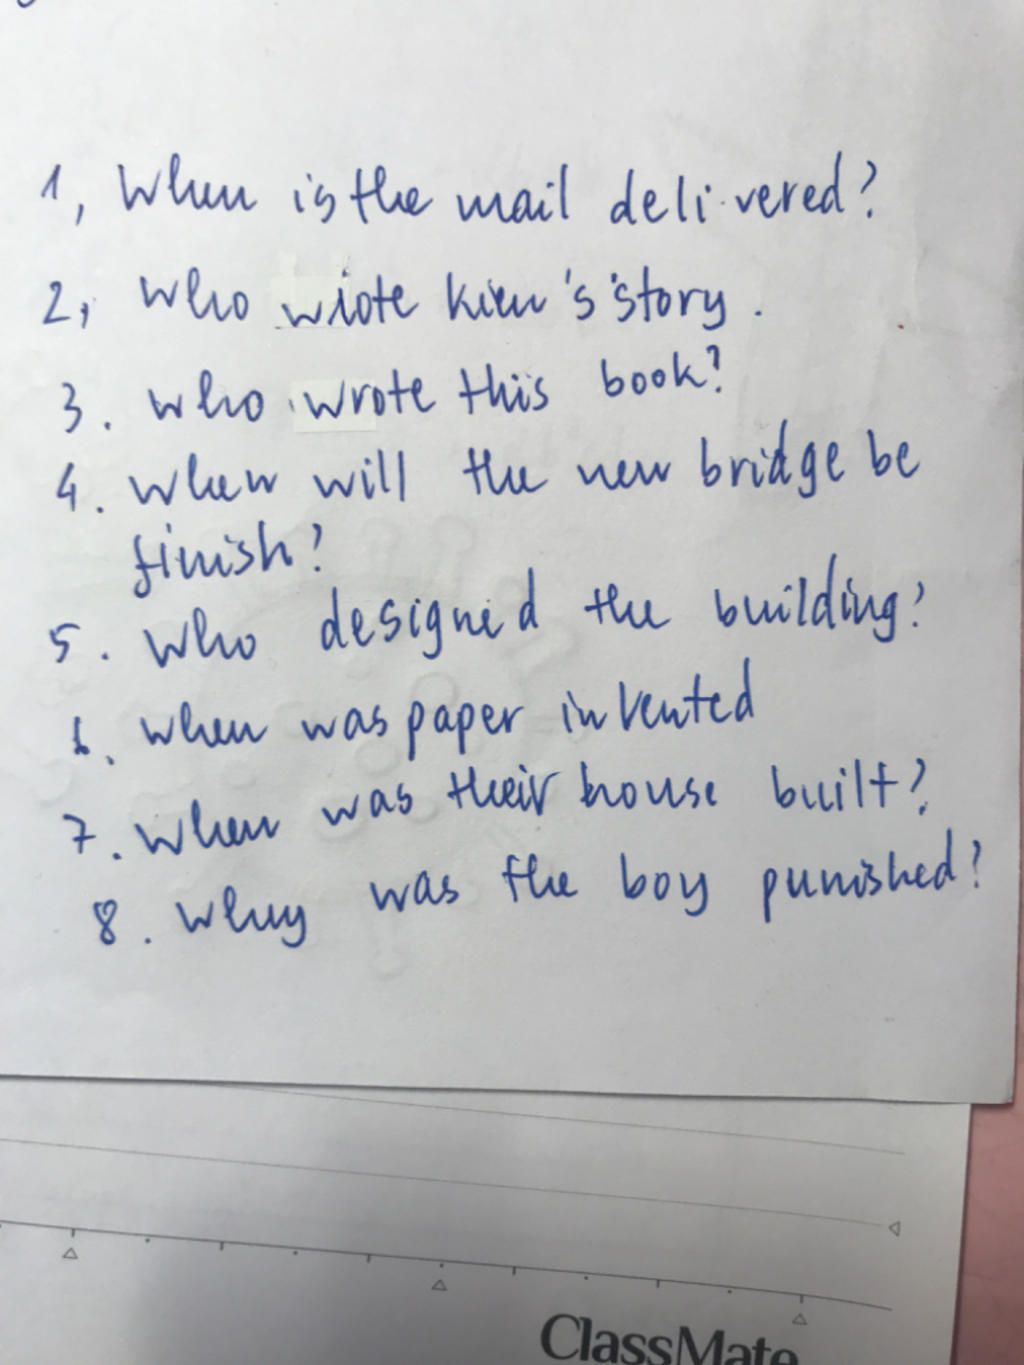 1, When is the mail delivered?
2, Who wrote kien's story.
3. who wrote this book?
4. when will the new bridge be
finish?
5. Who designed the building?
6. when was paper invented
7. when was their house built?
8. why was the boy punished?
ClassMate